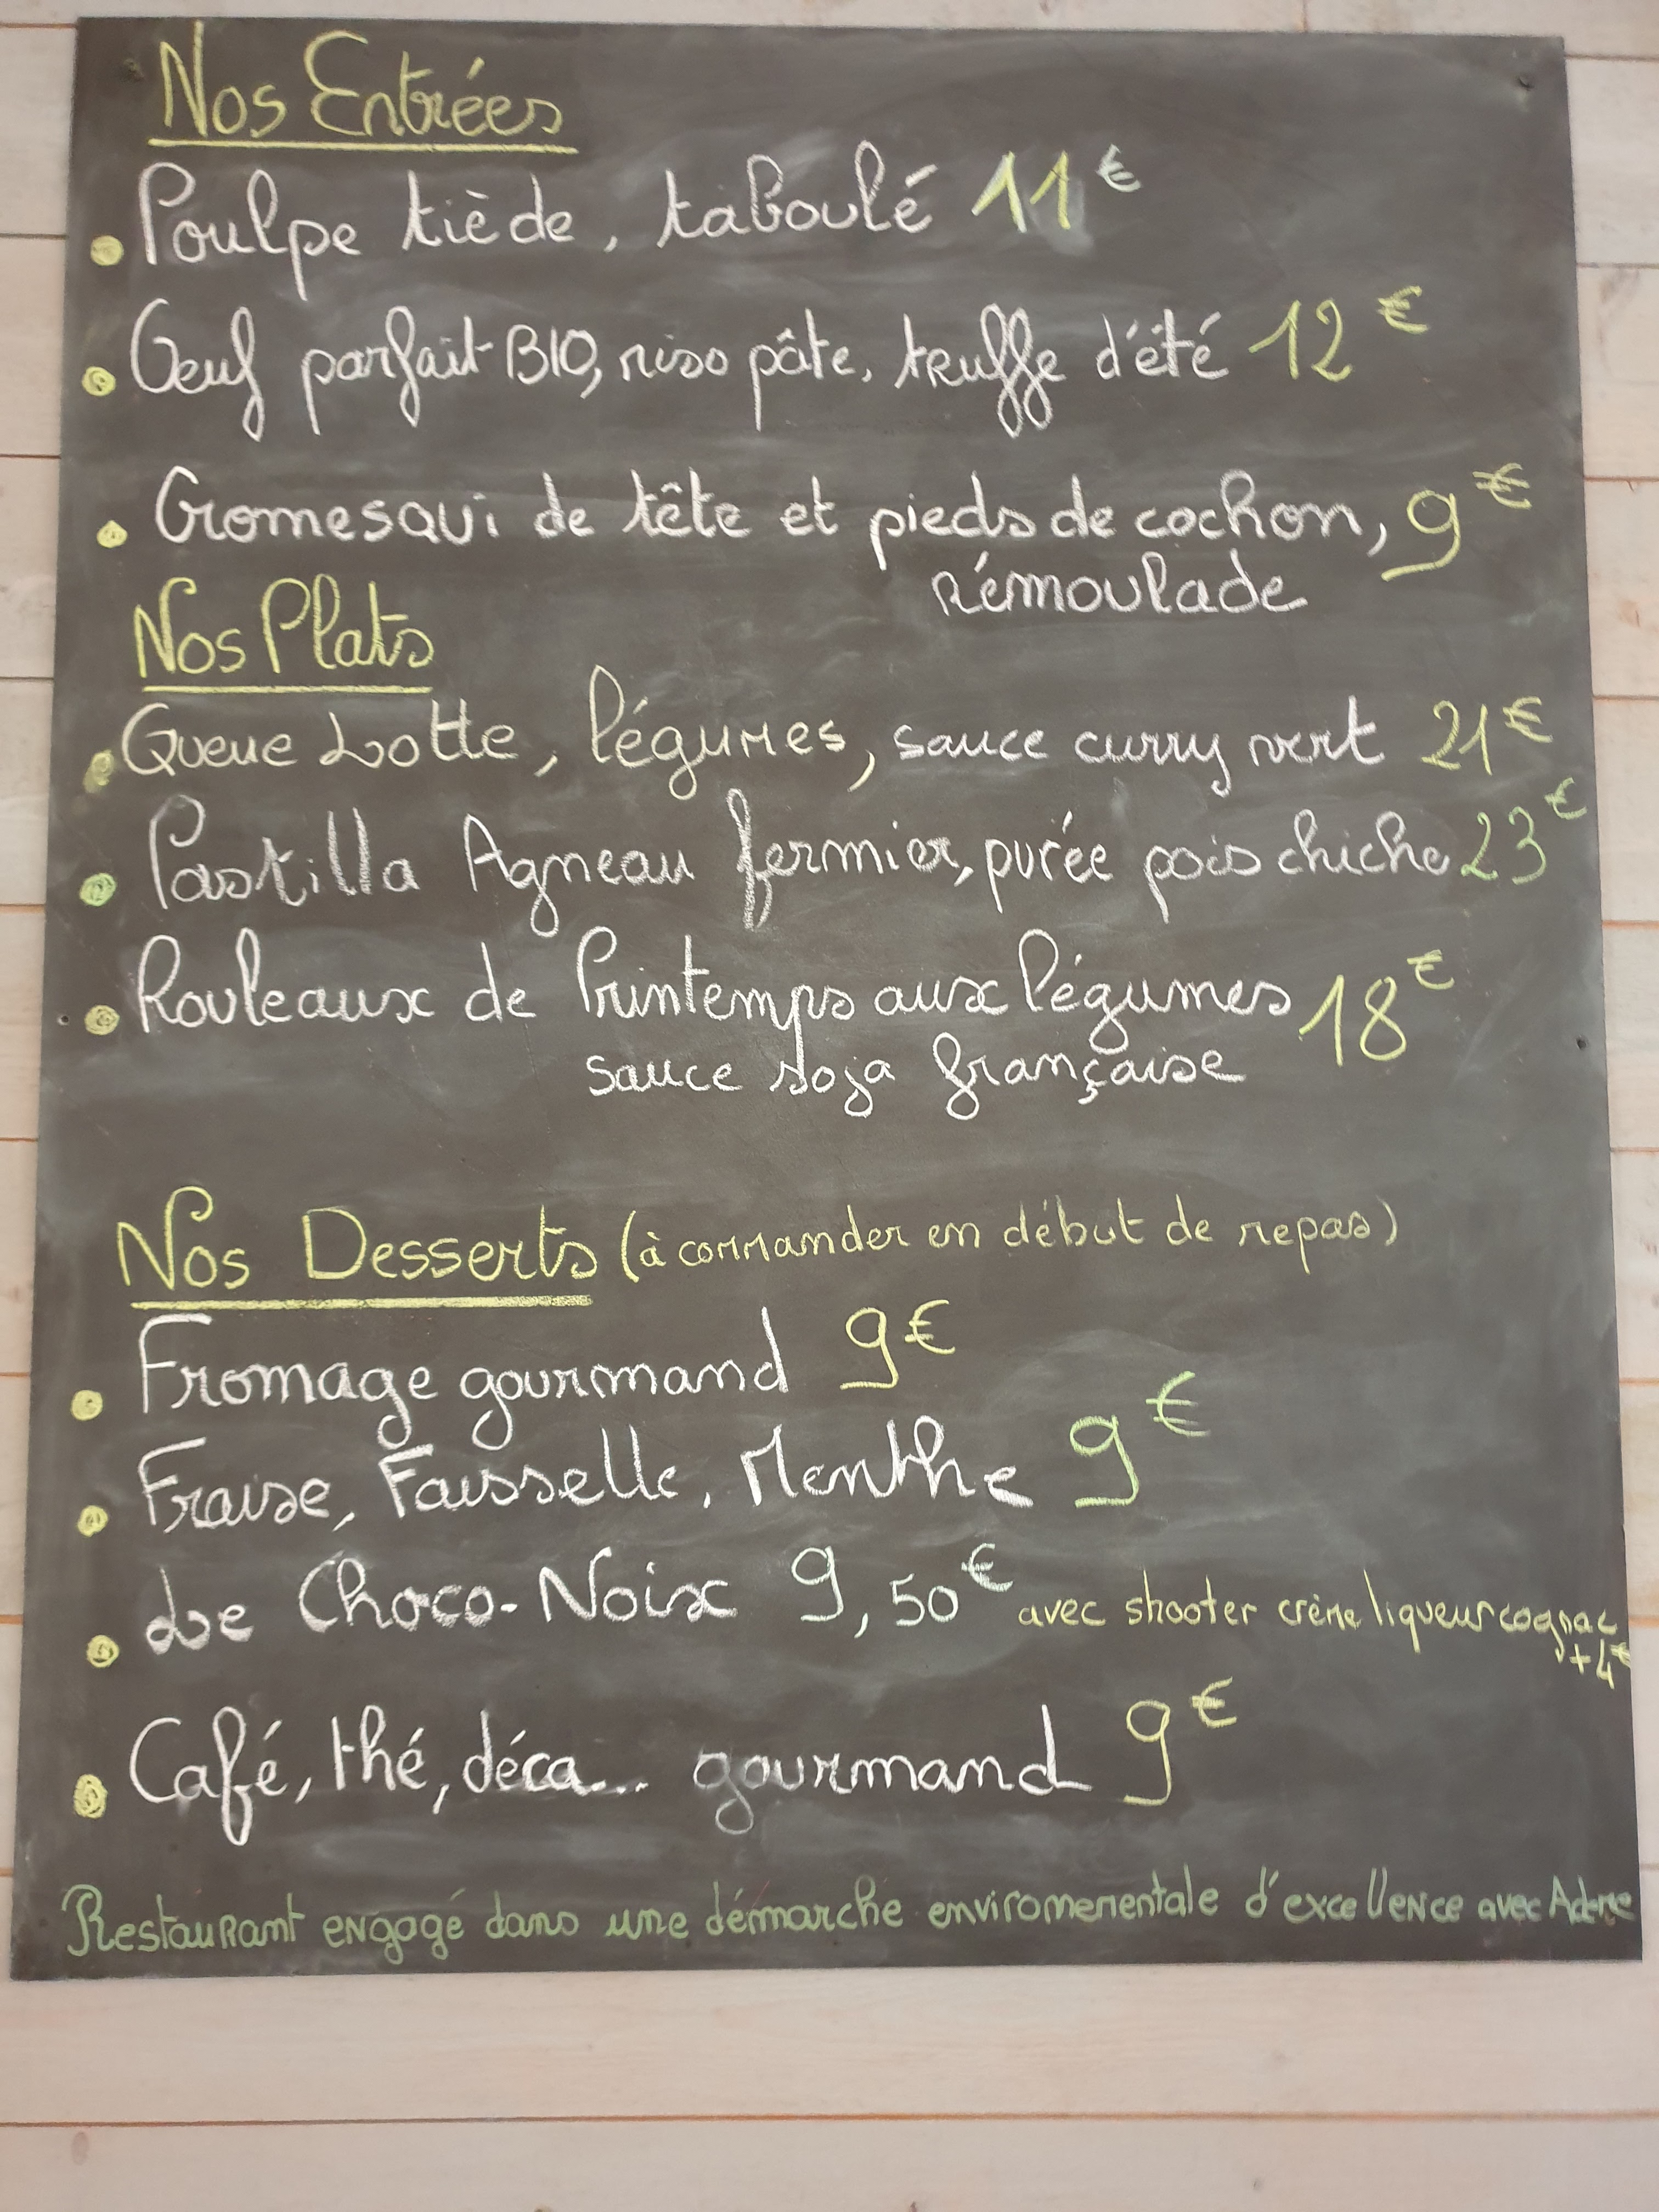 Nos Entrées
Poulpe tiède, taboulé 11€
Oeuf parfait BIO, riso pâte, truffe d'été 12€
Cromesqui de tête et pieds de cochon, 9€
rémoulade
Nos Plats
Queue Lotte, légumes, sauce curry vert 21€
Pastilla Agneau fermier, purée pois chiche 23€
Rouleaux de Printemps aux légumes 18€
sauce soja française
Nos Desserts (à commander en début de repas)
Fromage gourmand 9€
Fraise, Faisselle, Menthe 9€
Le Choco-Noix 9,50€ avec shooter crème liqueur cognac
+4€
Café, thé, déca... gourmand 9€
Restaurant engagé dans une démarche enviromementale d'excellence avec